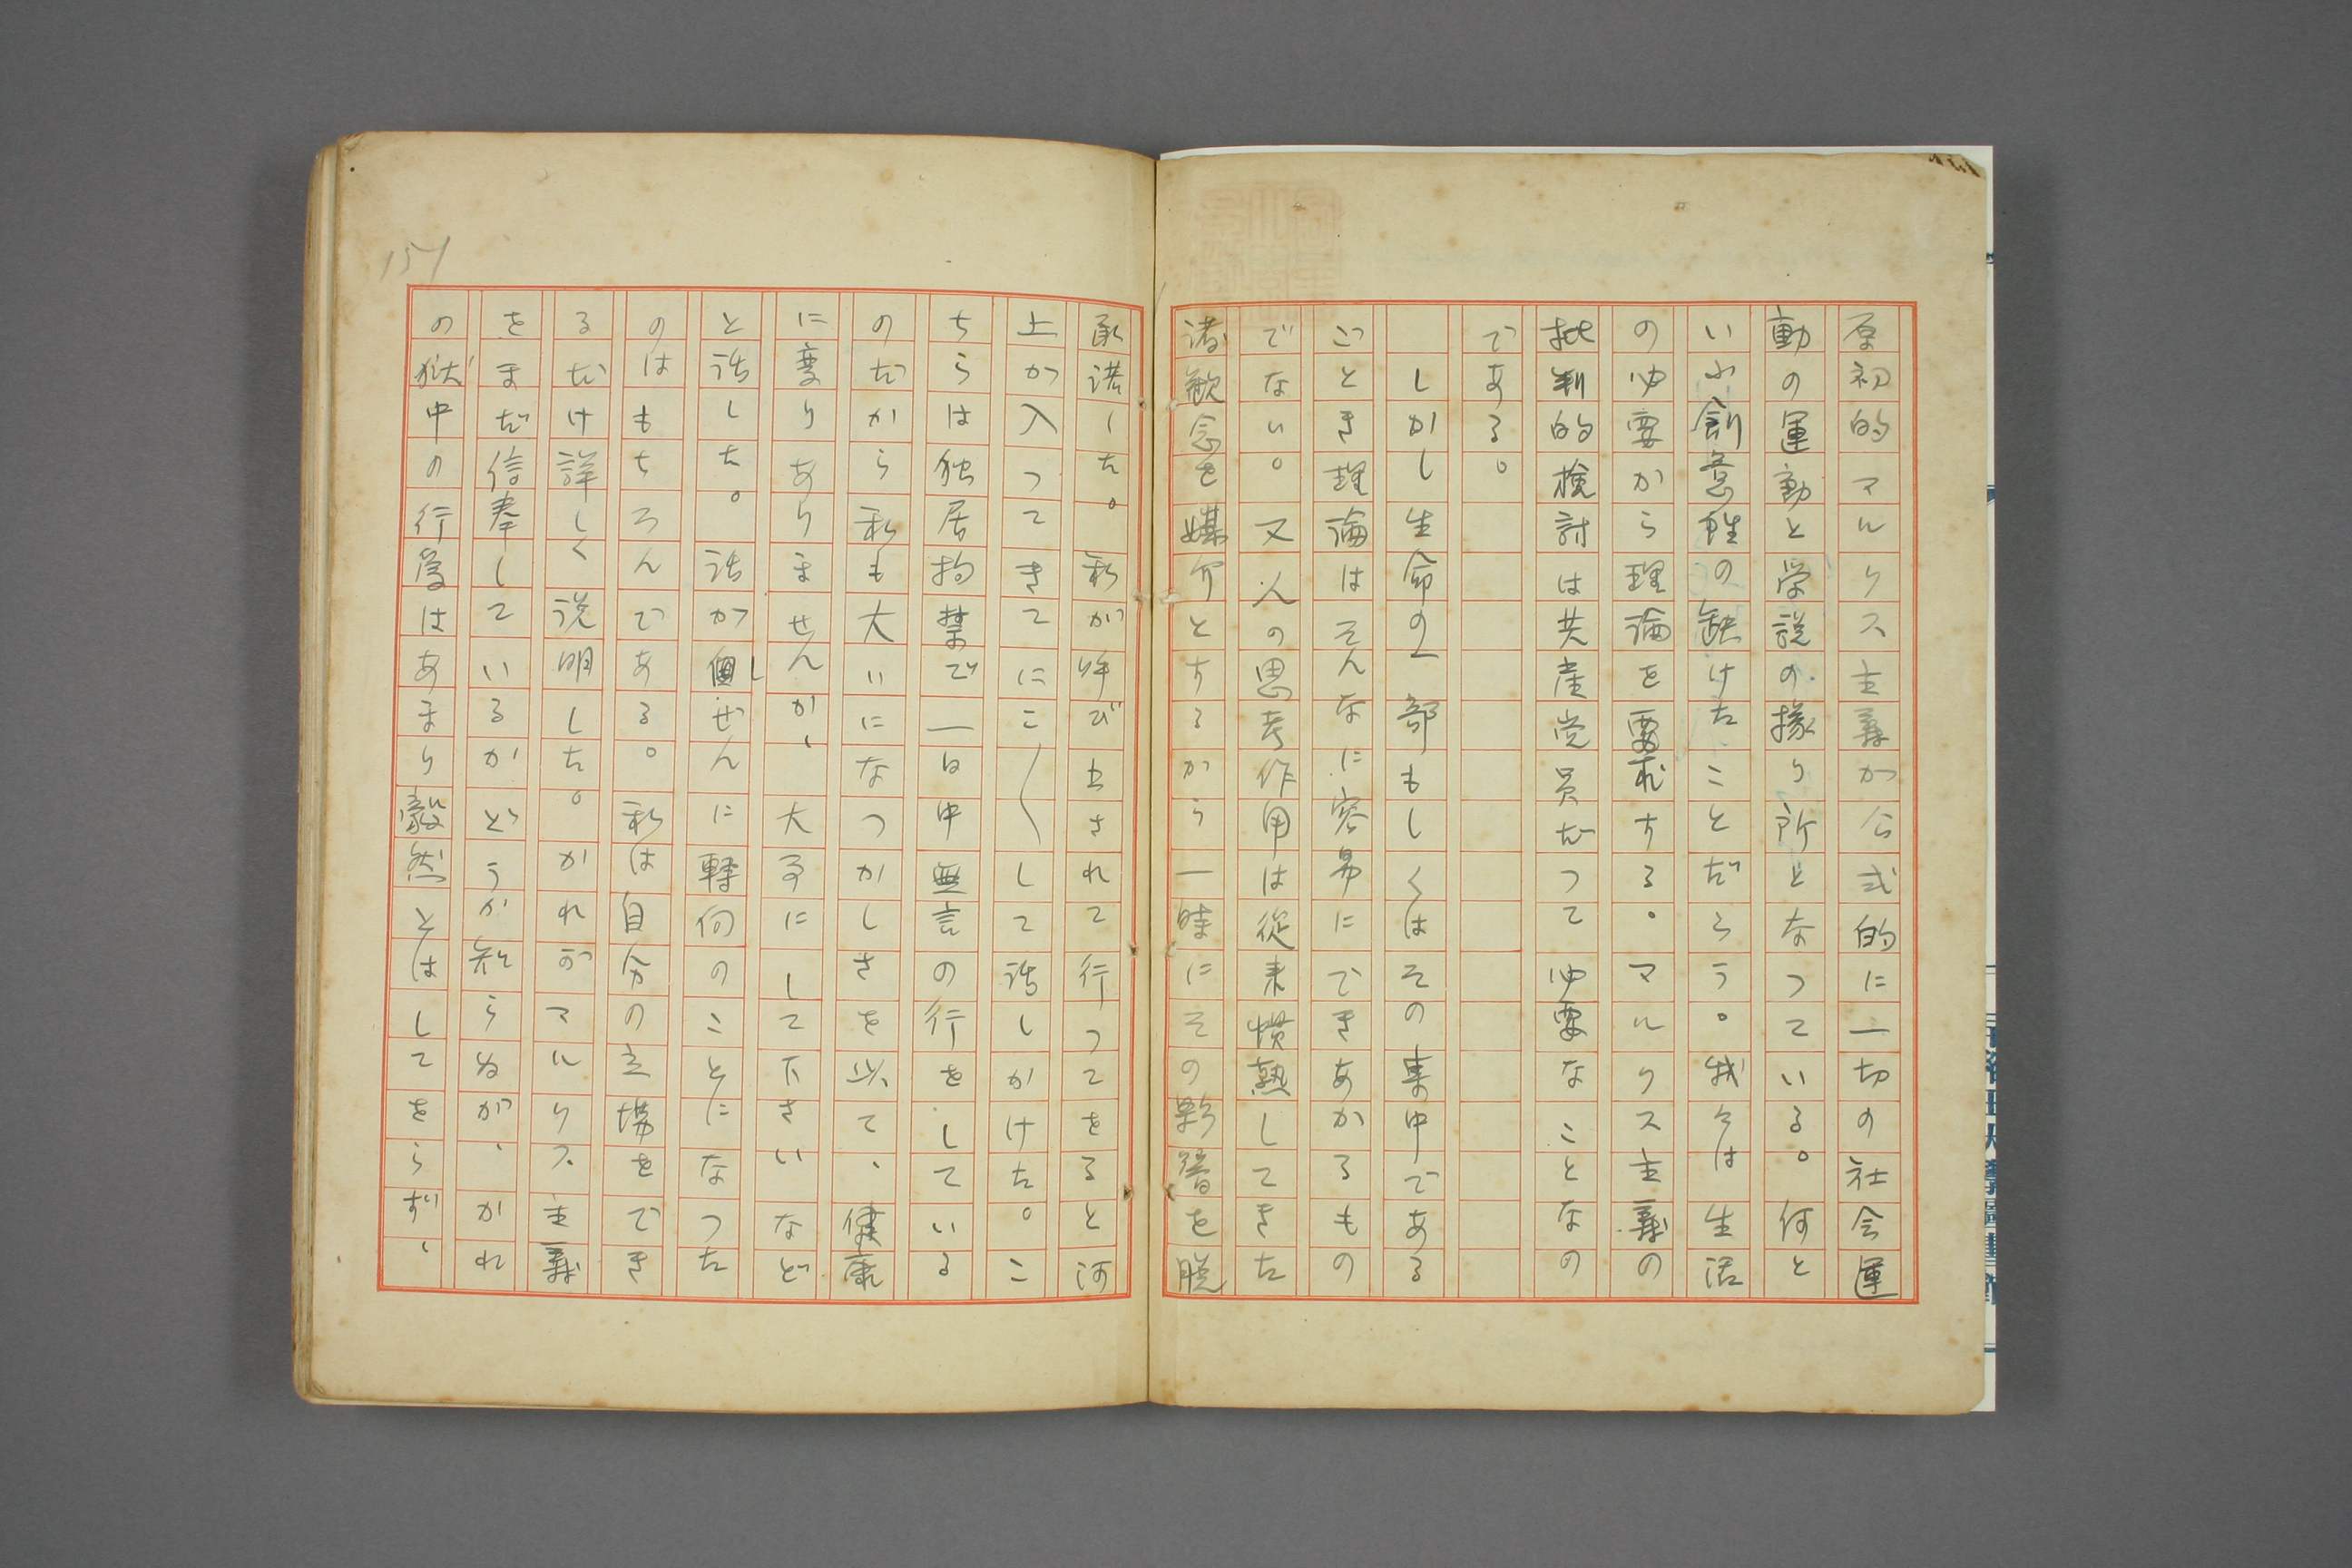 原初的マルリス主義が公式的に一切の社会運
動の運動と学説の據り所となつている。何と
いふ創意性の缺けたことだらう。我々は生活
の必要から理論を要求する。マルリス主義の
批判的検討は共産党員だつて必要なことなの
である。
しかし生命の一部もしくはその集中である
ごとき理論はそんなに容易にできあがるもの
でない。又人の思考作用は従来慣熟してきた
諸観念を媒介とするから一時にその影響を脱
承諾した。私が呼び出されて行つてをると河
上が入つてきてにこ〱して話しかけた。こ
ちらは独居拘禁で一日中無言の行をしている
のだから私も大いになつかしさを以て、健康
に変りありませんか、大事にして下さいなど
と話した。話が個しぜんに轉向のことになつた
のはもちろんである。私は自分の立場をでき
るだけ詳しく説明した。かれがマルリス主義
をまだ信奉しているかどうか知らぬが、かれ
の獄中の行為はあまり毅然とはしてをらず、
157